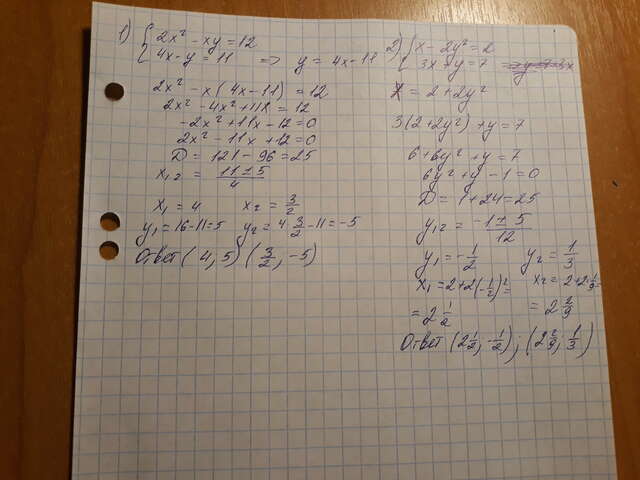 1) { 2x² - xy = 12
4x - y = 11 => y = 4x - 11
2x² - x(4x - 11) = 12
2x² - 4x² + 11x = 12
-2x² + 11x - 12 = 0
2x² - 11x + 12 = 0
D = 121 - 96 = 25
x₁,₂ = (11 ± 5)/4
x₁ = 4 x₂ = 3/2
y₁ = 16 - 11 = 5 y₂ = 4 3/2 - 11 = -5
Ответ (4, 5) (3/2, -5)
2) { x - 2y² = 2
3x + y = 7
x = 2 + 2y²
3(2 + 2y²) + y = 7
6 + 6y² + y = 7
6y² + y - 1 = 0
D = 1 + 24 = 25
y₁,₂ = (-1 ± 5)/12
y₁ = -1/2 y₂ = 1/3
x₁ = 2 + 2(-1/2)² = x₂ = 2 + 2 1/9 =
= 2 1/2 = 2 2/9
Ответ (2 1/2, -1/2); (2 2/9, 1/3)